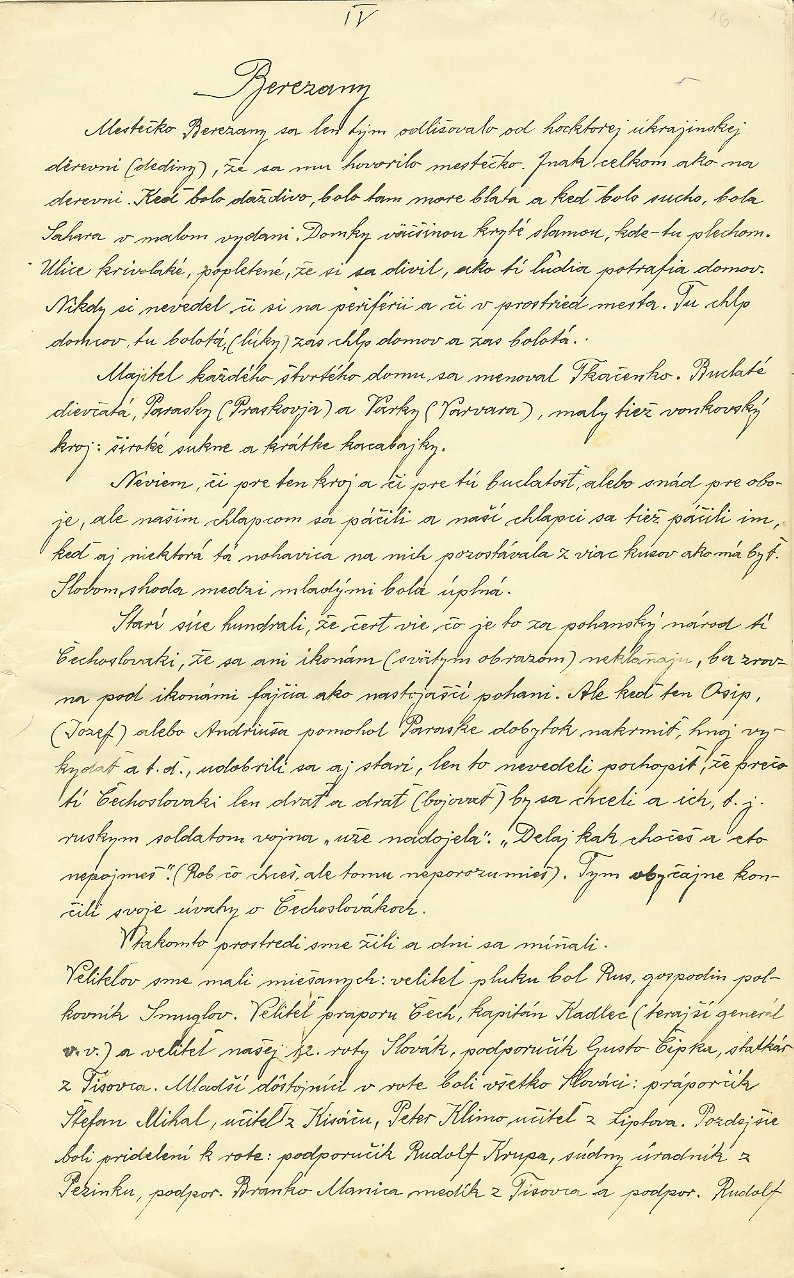 IV
16
Berezany
Mestečko Berezany sa len tým odlišovalo od hocktorej ukrajinskej
děrevni (dediny), že sa mu hovorilo mestečko. Inak celkom ako na
derevni. Keď bolo daždivo, bolo tam more blata a keď bolo sucho, bola
Sahara v malom vydaní. Domky väčšinou kryté slamou, kde-tu plechom.
Ulice krivolaké, popletené, že si sa divil, ako tí ľudia potrafia domov.
Nikdy si nevedel či si na periférii a či v prostried mesta. Tu chlp
domcov, tu bolotá, (lúky) zas chlp domov a zas bolotá.
Majiteľ každého štvrtého domu sa menoval Tkačenko. Buclaté
dievčatá, Parasky (Praskovja) a Varky (Varvara), maly tiež vonkovský
kroj: široké sukne a krátke kacabajky.
Neviem, či pre ten kroj a či pre tú buclatosť, alebo snáď pre obo-
je, ale našim chlapcom sa páčili a naší chlapci sa tiež páčili im,
keď aj niektorá tá nohavica na nich pozostávala z viac kusov ako má byť.
Slovom, shoda medzi mladými bola úplná.
Starí síce hundrali, že čert vie čo je to za pohanský národ tí
Čechoslovaki, že sa ani ikonám (svätym obrazom) neklaňaju, ba zrov-
na pod ikonámi fajčia ako nastojaščí pohani. Ale keď ten Osip,
(Jozef) alebo Andriuša pomohol Paraske dobytok nakrmiť, hnoj vy-
kydať a t.ď., udobrili sa aj starí, len to nevedeli pochopiť, že prečo
tí Čechoslovaki len drať a drať (bojovať) by sa chceli a ich, t. j.
ruskym soldatom vojna „uže nadojela". „Delaj kak chočeš a eto
nepojmeš". (Rob čo chceš, ale tomu neporozumieš). Tym obyčajne kon-
čili svoje úvahy o Čechoslovákoch.
V takomto prostredi sme žili a dni sa míňali.
Veliteľov sme mali miešanych: veliteľ pluku bol Rus, gospodin pol-
kovník Smuglov. Veliteľ praporu Čech, kapitán Kadlec (terajší generál
v. v.) a veliteľ našej 12. roty Slovák, podporučík Gusto Čipka, statkár
z Tisovca. Mladší dôstojníci v rote boli všetko Slováci: práporčík
Štefan Mihal, učiteľ z Kisáču, Peter Klimo učiteľ z Liptova. Pozdejšie
boli pridelení k rote: podporučík Rudolf Krupa, súdny úradník z
Pezinku, podpor. Branko Manica medik z Tisovca a podpor. Rudolf